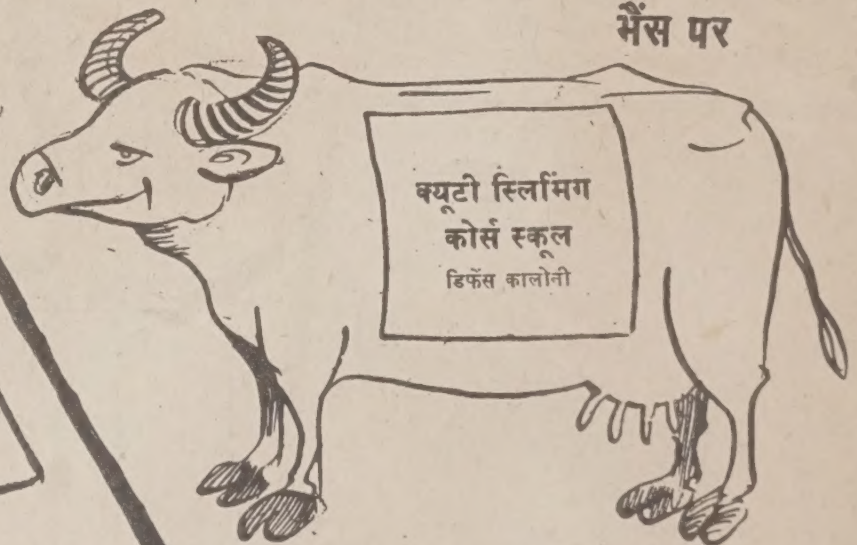 भैंस पर
क्यूटी स्लिमिंग
कोर्स स्कूल
डिफेंस कालोनी